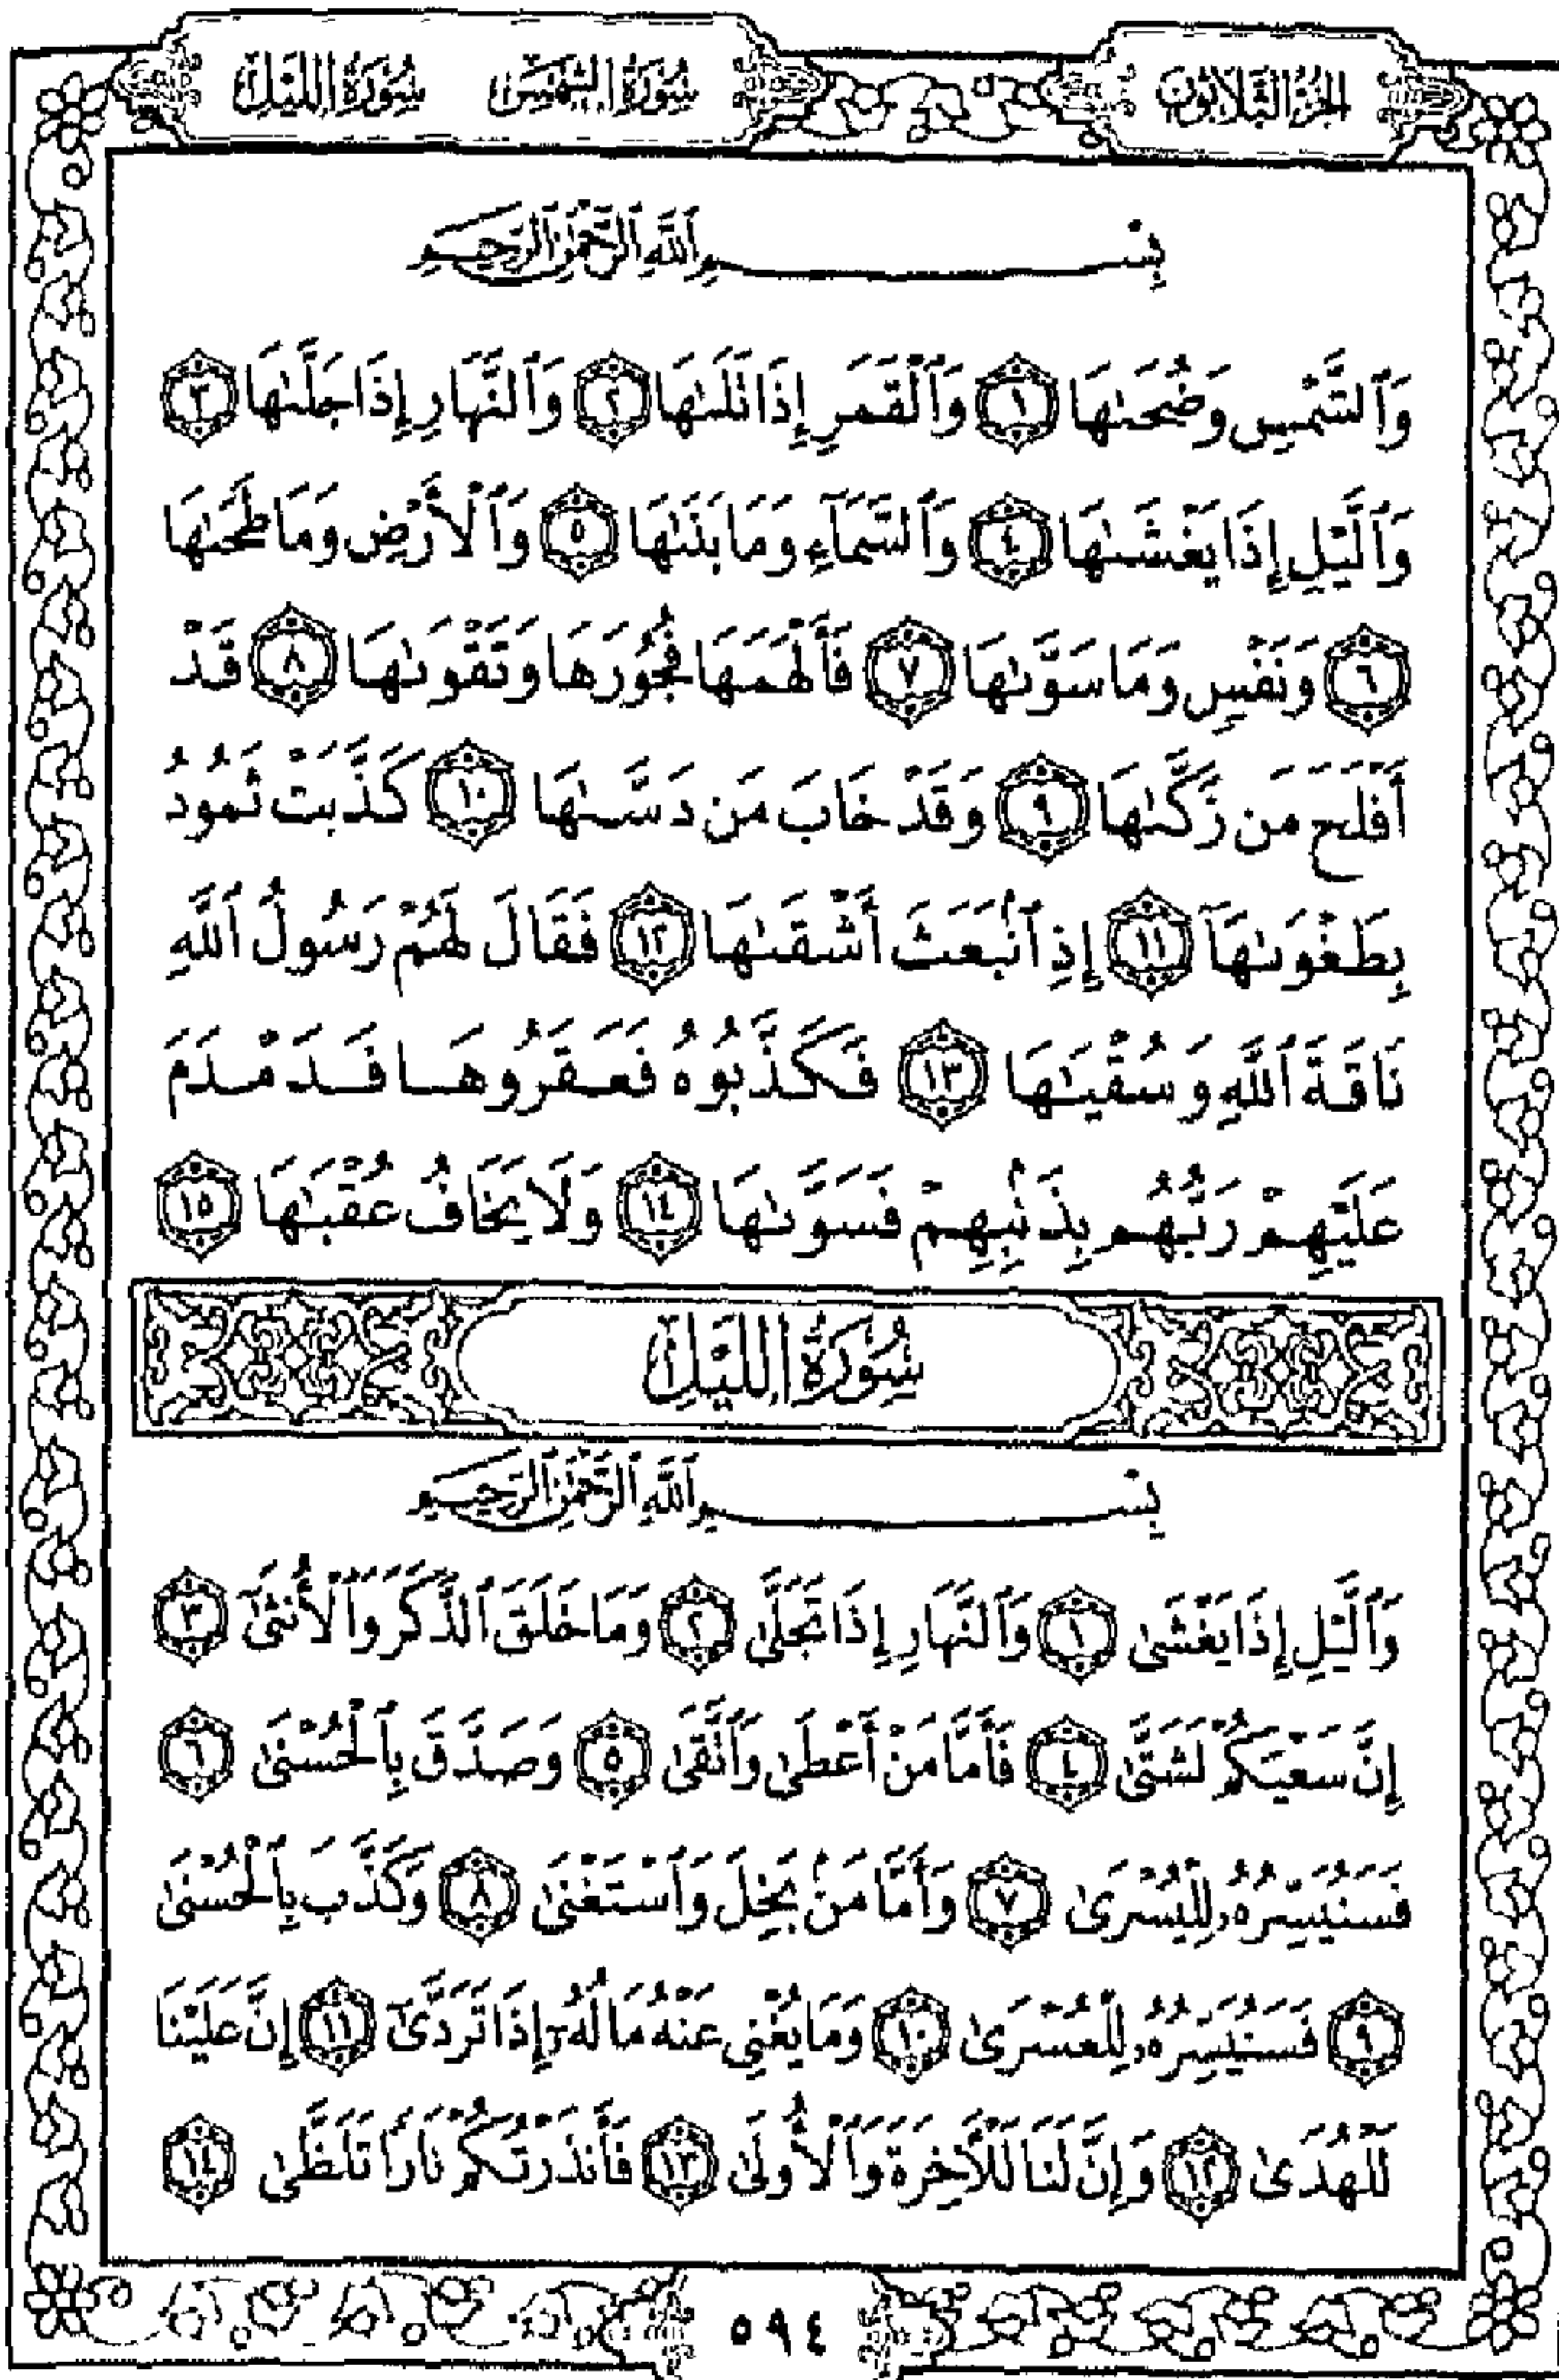 الجزء الثلاثون سورة الشمس سورة الليل
بِسْمِ ٱللَّهِ ٱلرَّحْمَٰنِ ٱلرَّحِيمِ
وَٱلشَّمْسِ وَضُحَىٰهَا ١ وَٱلْقَمَرِ إِذَا تَلَىٰهَا ٢ وَٱلنَّهَارِ إِذَا جَلَّىٰهَا ٣
وَٱلَّيْلِ إِذَا يَغْشَىٰهَا ٤ وَٱلسَّمَآءِ وَمَا بَنَىٰهَا ٥ وَٱلْأَرْضِ وَمَا طَحَىٰهَا
٦ وَنَفْسٍ وَمَا سَوَّىٰهَا ٧ فَأَلْهَمَهَا فُجُورَهَا وَتَقْوَىٰهَا ٨ قَدْ
أَفْلَحَ مَن زَكَّىٰهَا ٩ وَقَدْ خَابَ مَن دَسَّىٰهَا ١٠ كَذَّبَتْ ثَمُودُ
بِطَغْوَىٰهَآ ١١ إِذِ ٱنۢبَعَثَ أَشْقَىٰهَا ١٢ فَقَالَ لَهُمْ رَسُولُ ٱللَّهِ
نَاقَةَ ٱللَّهِ وَسُقْيَٰهَا ١٣ فَكَذَّبُوهُ فَعَقَرُوهَا فَدَمْدَمَ
عَلَيْهِمْ رَبُّهُم بِذَنۢبِهِمْ فَسَوَّىٰهَا ١٤ وَلَا يَخَافُ عُقْبَٰهَا ١٥
سُورَةُ اللَّيْلِ
بِسْمِ ٱللَّهِ ٱلرَّحْمَٰنِ ٱلرَّحِيمِ
وَٱلَّيْلِ إِذَا يَغْشَىٰ ١ وَٱلنَّهَارِ إِذَا تَجَلَّىٰ ٢ وَمَا خَلَقَ ٱلذَّكَرَ وَٱلْأُنثَىٰٓ ٣
إِنَّ سَعْيَكُمْ لَشَتَّىٰ ٤ فَأَمَّا مَنْ أَعْطَىٰ وَٱتَّقَىٰ ٥ وَصَدَّقَ بِٱلْحُسْنَىٰ ٦
فَسَنُيَسِّرُهُۥ لِلْيُسْرَىٰ ٧ وَأَمَّا مَنۢ بَخِلَ وَٱسْتَغْنَىٰ ٨ وَكَذَّبَ بِٱلْحُسْنَىٰ
٩ فَسَنُيَسِّرُهُۥ لِلْعُسْرَىٰ ١٠ وَمَا يُغْنِى عَنْهُ مَالُهُۥٓ إِذَا تَرَدَّىٰٓ ١١ إِنَّ عَلَيْنَا
لَلْهُدَىٰ ١٢ وَإِنَّ لَنَا لَلْأَخِرَةَ وَٱلْأُولَىٰ ١٣ فَأَنذَرْتُكُمْ نَارًا تَلَظَّىٰ ١٤
٥٩٤